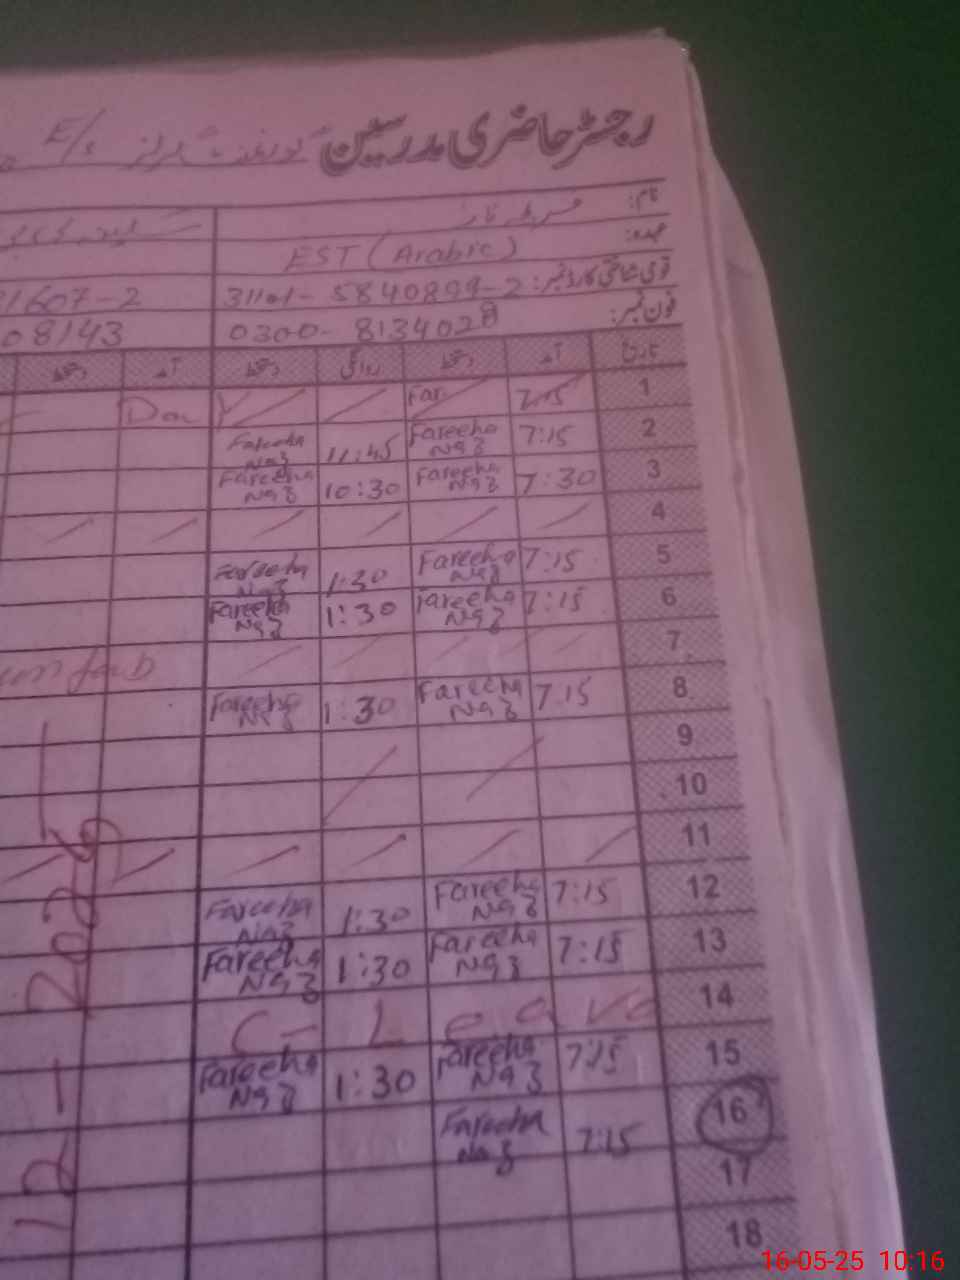 رجسٹر حاضری مدرسین گورنمنٹ گرلز E/S
نام:
عہدہ: EST (Arabic)
قومی شناختی کارڈ نمبر: 31101-5840899-2 31607-2
فون نمبر: 0300-8134028 08143
تاریخ آمد دستخط روانگی دستخط آمد دستخط
1 7:15 Far
2 7:15 Fareeha Naz 11:45 Fareeha Naz
3 7:30 Fareeha Naz 10:30 Fareeha Naz
4
5 7:15 Fareeha Naz 1:30 Fareeha Naz
6 7:15 Fareeha Naz 1:30 Fareeha Naz
7
8 7:15 Fareeha Naz 1:30 Fareeha Naz
9
10
11
12 7:15 Fareeha Naz 1:30 Fareeha Naz
13 7:15 Fareeha Naz 1:30 Fareeha Naz
14 C-Leave
15 7:15 Fareeha Naz 1:30 Fareeha Naz
16 7:15 Fareeha Naz
17
18
16-05-25 10:16